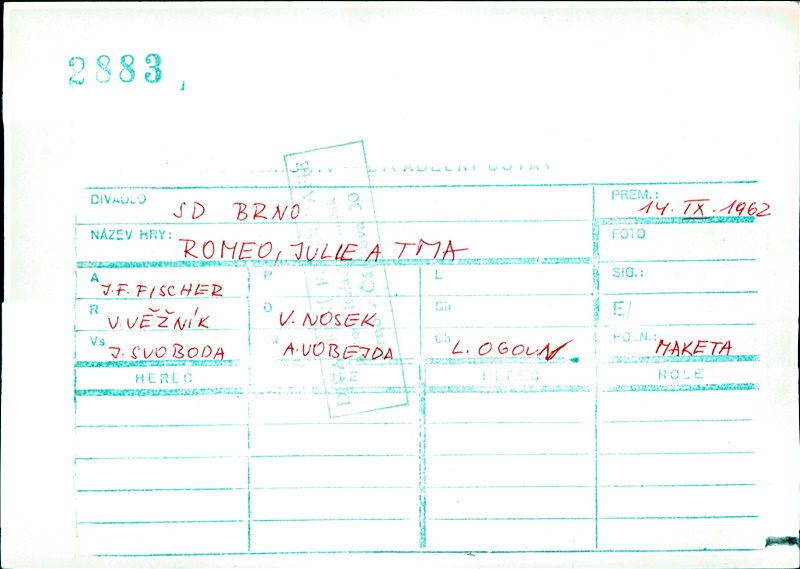 2883
DIVADELNÍ ÚSTAV
DIVADLO SD BRNO PREM.: 14. IX. 1962
NÁZEV HRY: ROMEO, JULIE A TMA FOTO
A J.F. FISCHER P L SIG.:
R V. VĚŽNÍK D V. NOSEK Sb E/
Vs J. SVOBODA A. VOBEJDA Ch L. OGOUN POZN.: MAKETA
HEREC HEREC ROLE